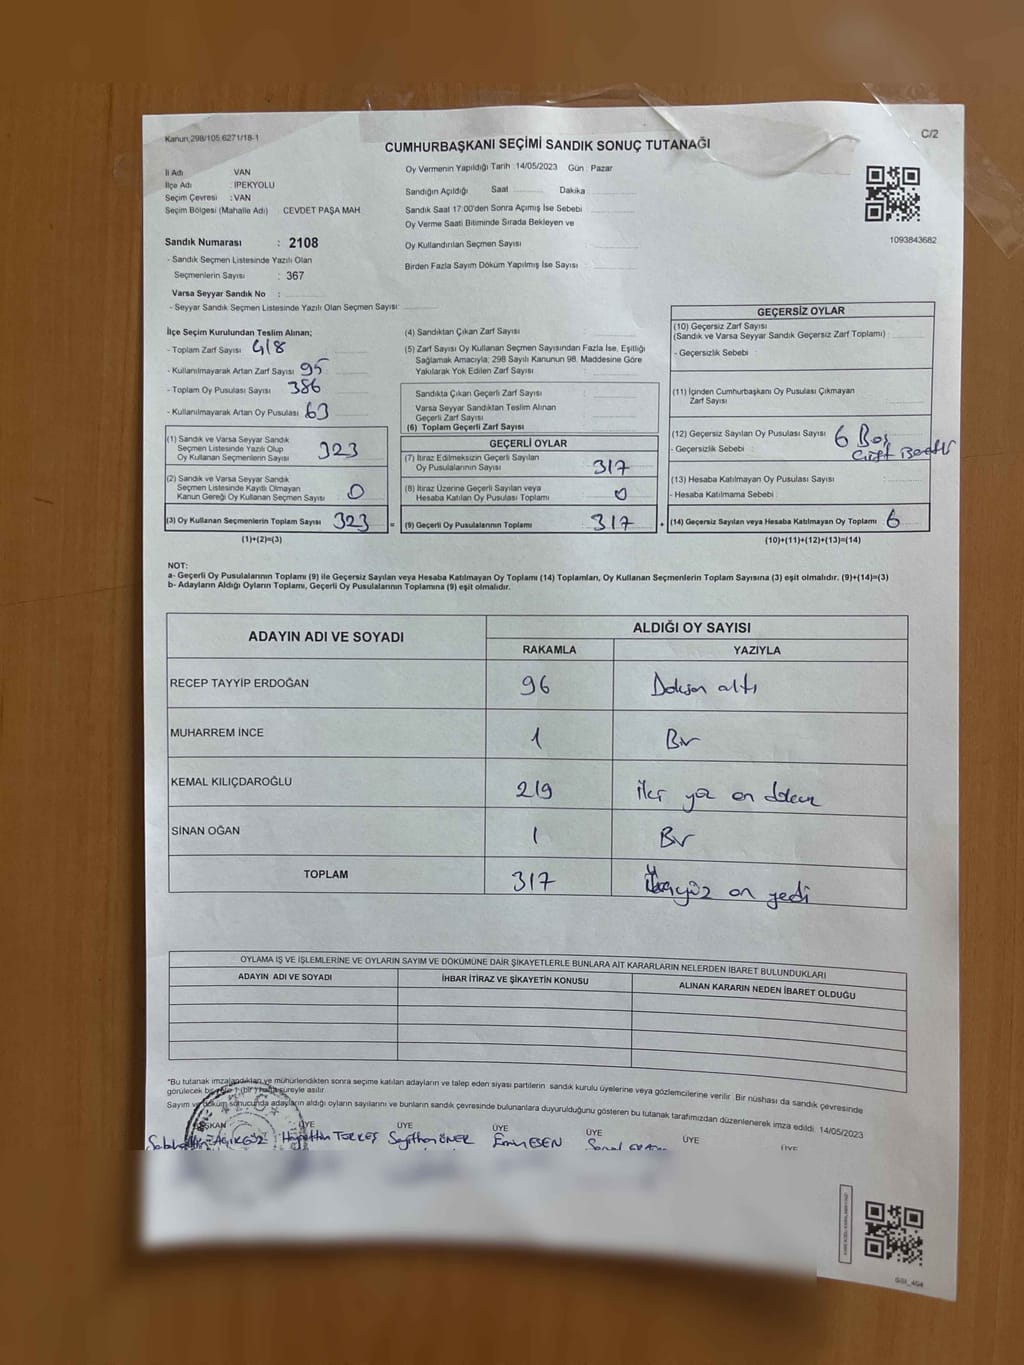 Kanun:298/105.6271/18-1
C/2
CUMHURBAŞKANI SEÇİMİ SANDIK SONUÇ TUTANAĞI
İl Adı VAN
İlçe Adı : İPEKYOLU
Seçim Çevresi : VAN
Seçim Bölgesi (Mahalle Adı) CEVDET PAŞA MAH.
Oy Vermenin Yapıldığı Tarih :14/05/2023 Gün : Pazar
Sandığın Açıldığı Saat Dakika
Sandık Saat 17:00'den Sonra Açımış İse Sebebi
Oy Verme Saati Bitiminde Sırada Bekleyen ve
Oy Kullandırılan Seçmen Sayısı
Birden Fazla Sayım Döküm Yapılmış İse Sayısı :
1093843682
Sandık Numarası : 2108
- Sandık Seçmen Listesinde Yazılı Olan
Seçmenlerin Sayısı : 367
Varsa Seyyar Sandık No :
- Seyyar Sandık Seçmen Listesinde Yazılı Olan Seçmen Sayısı:
İlçe Seçim Kurulundan Teslim Alınan;
- Toplam Zarf Sayısı 418
- Kullanılmayarak Artan Zarf Sayısı 95
- Toplam Oy Pusulası Sayısı 386
- Kullanılmayarak Artan Oy Pusulası 63
(1) Sandık ve Varsa Seyyar Sandık
Seçmen Listesinde Yazılı Olup
Oy Kullanan Seçmenlerin Sayısı 323
(2) Sandık ve Varsa Seyyar Sandık
Seçmen Listesinde Kayıtlı Olmayan
Kanun Gereği Oy Kullanan Seçmen Sayısı 0
(3) Oy Kullanan Seçmenlerin Toplam Sayısı 323 =
(1)+(2)=(3)
(4) Sandıktan Çıkan Zarf Sayısı
(5) Zarf Sayısı Oy Kullanan Seçmen Sayısından Fazla İse, Eşitliği
Sağlamak Amacıyla; 298 Sayılı Kanunun 98. Maddesine Göre
Yakılarak Yok Edilen Zarf Sayısı
Sandıkta Çıkan Geçerli Zarf Sayısı
Varsa Seyyar Sandıktan Teslim Alınan
Geçerli Zarf Sayısı
(6) Toplam Geçerli Zarf Sayısı
GEÇERLİ OYLAR
(7) İtiraz Edilmeksizin Geçerli Sayılan
Oy Pusulalarının Sayısı 317
(8) İtiraz Üzerine Geçerli Sayılan veya
Hesaba Katılan Oy Pusulası Toplamı 0
(9) Geçerli Oy Pusulalarının Toplamı 317 +
GEÇERSİZ OYLAR
(10) Geçersiz Zarf Sayısı
(Sandık ve Varsa Seyyar Sandık Geçersiz Zarf Toplamı) :
- Geçersizlik Sebebi :
(11) İçinden Cumhurbaşkanı Oy Pusulası Çıkmayan
Zarf Sayısı
(12) Geçersiz Sayılan Oy Pusulası Sayısı 6 Boş
- Geçersizlik Sebebi : Çift
(13) Hesaba Katılmayan Oy Pusulası Sayısı :
- Hesaba Katılmama Sebebi :
(14) Geçersiz Sayılan veya Hesaba Katılmayan Oy Toplamı 6
(10)+(11)+(12)+(13)=(14)
NOT:
a- Geçerli Oy Pusulalarının Toplamı (9) ile Geçersiz Sayılan veya Hesaba Katılmayan Oy Toplamı (14) Toplamları, Oy Kullanan Seçmenlerin Toplam Sayısına (3) eşit olmalıdır. (9)+(14)=(3)
b- Adayların Aldığı Oyların Toplamı, Geçerli Oy Pusulalarının Toplamına (9) eşit olmalıdır.
ADAYIN ADI VE SOYADI ALDIĞI OY SAYISI
RAKAMLA YAZIYLA
RECEP TAYYİP ERDOĞAN 96 Doksan altı
MUHARREM İNCE 1 Bir
KEMAL KILIÇDAROĞLU 219 İki yüz on dokuz
SİNAN OĞAN 1 Bir
TOPLAM 317 on yedi
OYLAMA İŞ VE İŞLEMLERİNE VE OYLARIN SAYIM VE DÖKÜMÜNE DAİR ŞİKAYETLERLE BUNLARA AİT KARARLARIN NELERDEN İBARET BULUNDUKLARI
ADAYIN ADI VE SOYADI İHBAR İTİRAZ VE ŞİKAYETİN KONUSU ALINAN KARARIN NEDEN İBARET OLDUĞU
*Bu tutanak imzalandıktan ve mühürlendikten sonra seçime katılan adayların ve talep eden siyasi partilerin sandık kurulu üyelerine veya gözlemcilerine verilir. Bir nüshası da sandık çevresinde
görülecek bir yere 1 (bir) hafta süreyle asılır.
Sayım ve döküm sonucunda adayların aldığı oyların sayılarını ve bunların sandık çevresinde bulunanlara duyurulduğunu gösteren bu tutanak tarafımızdan düzenlenerek imza edildi. 14/05/2023
BAŞKAN ÜYE ÜYE ÜYE ÜYE ÜYE ÜYE
AÇIKGÖZ Hayrettin TERKEŞ Seyithan ÖNER Emin ESEN